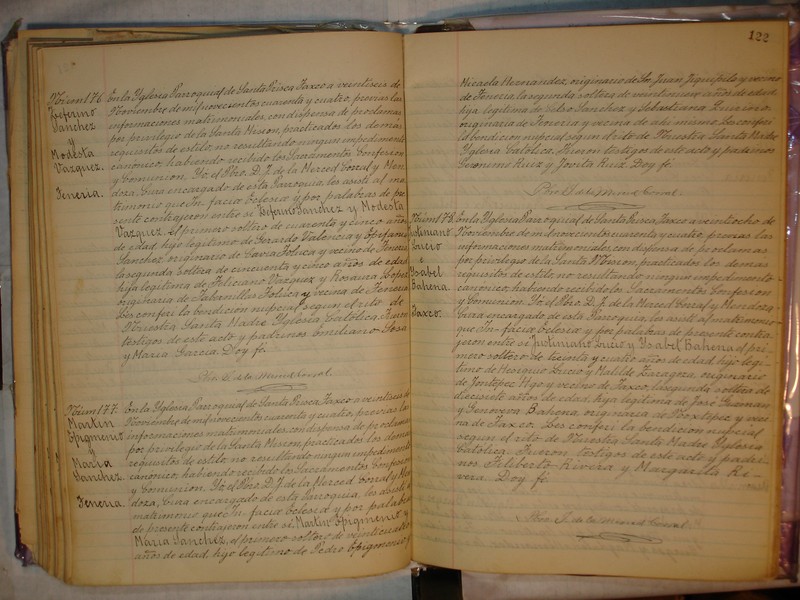 Núm 176
Zeferino
Sánchez
y
Modesta
Vázquez.
Tenería.
En la Yglesia Parroquial de Santa Prisca Taxco a veintiseis de
Noviembre de mil novecientos cuarenta y cuatro, previas las
informaciones matrimoniales, con dispensa de proclamas
por privilegio de la Santa Mision, practicados los demas
requisitos de estilo, no resultando ningun impedimento
canónico, habiendo recibido los Sacramentos Confesion
y Comunion. Yo el Pbro. D. J. de la Merced Corral y Men-
doza, Cura encargado de esta Parroquia, les asisti al ma-
trimonio que In facia Eclesia y por palabras de pre
sente contrajeron entre si Zeferino Sanchez y Modesta
Vazquez, el primero soltero de cuarenta y cinco años
de edad, hijo legítimo de Gerardo Valencia y Epifania
Sanchez originario de Toluca y vecino de Tenería
la segunda soltera de cincuenta y cinco años de edad
hija legítima de Feliciano Vázquez y Rosaura López
originaria de Toluca y vecina de Tenería
Les conferi la bendicion nupcial segun el rito de
Nuestra Santa Madre Yglesia Católica. Fueron
testigos de este acto y padrinos Emiliano Sosa
y María García. Doy fé.
Núm 177.
Martín
Epigmenio
y
María
Sánchez.
Tenería.
En la Yglesia Parroquial de Santa Prisca Taxco a veintiseis de
Noviembre de mil novecientos cuarenta y cuatro, previas las
informaciones matrimoniales, con dispensa de proclamas
por privilegio de la Santa Mision, practicados los demas
requisitos de estilo, no resultando ningun impedimento
canónico, habiendo recibido los Sacramentos Confesion
y Comunion. Yo el Pbro. D. J. de la Merced Corral y Men-
doza, Cura encargado de esta Parroquia, les asisti al
matrimonio que In facia Eclesia y por palabras
de presente contrajeron entre si Martin Epigmenio y
María Sánchez, el primero soltero de veinticuatro
años de edad, hijo legitimo de Pedro Epigmenio y
122
Micaela Hernandez, originario de San Juan Jiquipilco y vecino
de Tenería la segunda soltera de veintinueve años de edad
hija legítima de Pedro Sanchez y Sebastiana
originaria de Tenería y vecina de ahi mismo. Les conferi
la bendicion nupcial segun el rito de Nuestra Santa Madre
Yglesia Católica. Fueron testigos de este acto y padrinos
Geronimo Ruiz y Jovita Ruiz. Doy fé.
Núm 178.
Justiniano
Lucio
e
Ysabel
Bahena
Taxco.
En la Yglesia Parroquial de Santa Prisca, Taxco a veintiocho de
Noviembre de mil novecientos cuarenta y cuatro, previas las
informaciones matrimoniales, con dispensa de proclamas
por privilegio de la Santa Mision, practicados los demas
requisitos de estilo, no resultando ningun impedimento
canónico, habiendo recibido los Sacramentos Confesion
y Comunion. Yo el Pbro. D. J. de la Merced Corral y Mendoza
Cura encargado de esta Parroquia, les asisti al matrimonio
que In facia Eclesia y por palabras de presente contra-
jeron entre si Justiniano Lucio y Ysabel Bahena, el pri-
mero soltero de treinta y cuatro años de edad, hijo legi-
timo de Lucio y Matilde Zaragoza, originario
de Jontepec Hgo y vecino de Taxco, la segunda soltera de
diecisiete años de edad, hija legítima de José Guzman
y Genoveva Bahena, originaria de Noxtepec y veci
na de Taxco. Les conferi la bendicion nupcial
segun el rito de Nuestra Santa Madre Yglesia
Católica. Fueron testigos de este acto y padri
nos Filiberto Rivera y Margarita Ri
vera Doy fé.